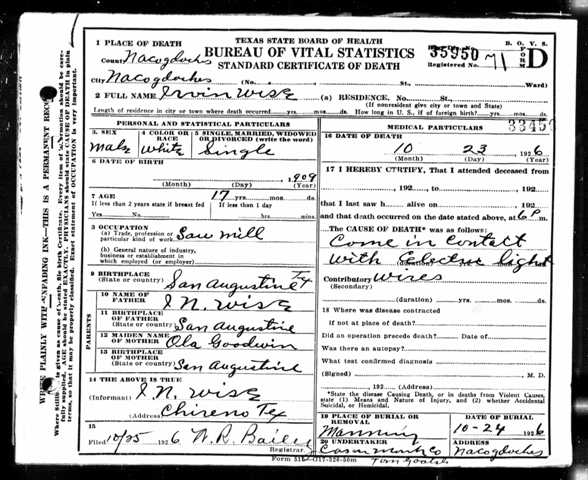 TEXAS STATE BOARD OF HEALTH
BUREAU OF VITAL STATISTICS
STANDARD CERTIFICATE OF DEATH
B. O. V. S.
FORM D
35950
Registered No. 71
WRITE PLAINLY WITH UNFADING INK—THIS IS A PERMANENT RECORD
1 PLACE OF DEATH
County Nacogdoches
City Nacogdoches (No. St., Ward)
2 FULL NAME Irvin Wise (a) RESIDENCE. No. St.
(If nonresident give city or town and State)
Length of residence in city or town where death occurred yrs. mos. ds. How long in U. S., if of foreign birth? yrs. mos. ds.
PERSONAL AND STATISTICAL PARTICULARS
3. SEX
Male
4 COLOR OR RACE
White
5 SINGLE, MARRIED, WIDOWED OR DIVORCED (write the word)
Single
6 DATE OF BIRTH
1909
(Month) (Day) (Year)
7 AGE
17 yrs. mos. ds.
If less than 2 years state if breast fed
Yes No
If less than 1 day
hrs. mins.
8 OCCUPATION
(a) Trade, profession or particular kind of work
Saw mill
(b) General nature of industry, business or establishment in which employed (or employer)
9 BIRTHPLACE
(State or country) San Augustine Tex
PARENTS
10 NAME OF FATHER
I. N. Wise
11 BIRTHPLACE OF FATHER
(State or country) San Augustine
12 MAIDEN NAME OF MOTHER
Ola Goodwin
13 BIRTHPLACE OF MOTHER
(State or country) San Augustine
14 THE ABOVE IS TRUE
(Informant) I. N. Wise
(Address) Chireno Tex
15
Filed 10/25 1926 W. R.
Registrar
MEDICAL PARTICULARS
33453
16 DATE OF DEATH
10 23 1926
(Month) (Day) (Year)
17 I HEREBY CERTIFY, That I attended deceased from
, 192 , to , 192
that I last saw h alive on , 192
and that death occurred on the date stated above, at 6 P. m.
The CAUSE OF DEATH* was as follows:
Come in contact
with Electric light
Contributory wires
(Secondary)
(duration) yrs. mos. ds.
18 Where was disease contracted
If not at place of death?
Did an operation precede death? Date of
Was there an autopsy?
What test confirmed diagnosis
(Signed) M. D.
192 (Address)
*State the disease Causing Death, or in deaths from Violent Causes, state (1) Means and Nature of Injury, and (2) whether Accidental, Suicidal, or Homicidal.
19 PLACE OF BURIAL OR REMOVAL
Manning
DATE OF BURIAL
10-24 1926
20 UNDERTAKER
ADDRESS
Nacogdoches